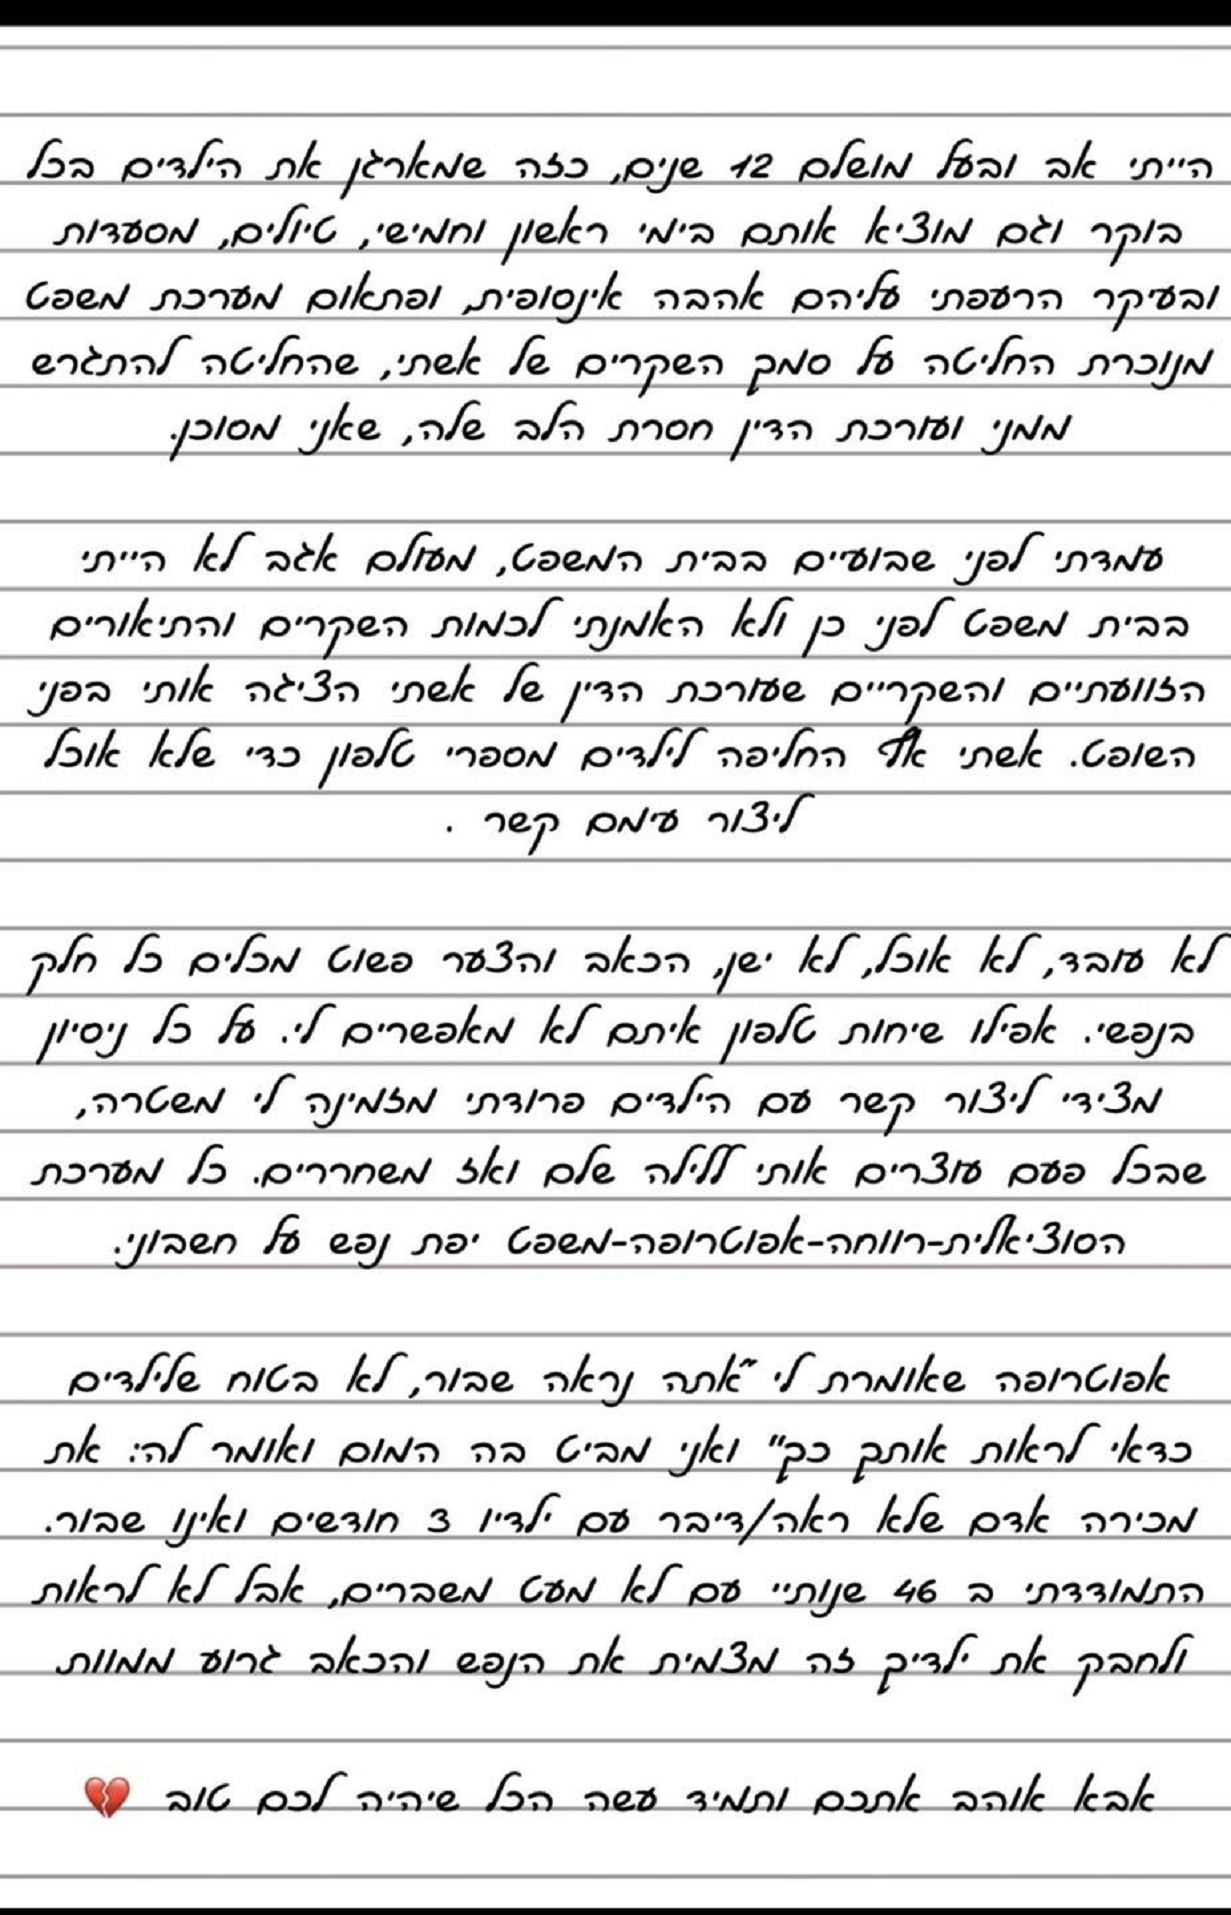 הייתי אב ובעל מושלם 12 שנים, כזה שמארגן את הילדים בכל
בוקר וגם מוציא אותם בימי ראשון וחמישי, טיולים, מסעדות
ובעיקר הרעפתי עליהם אהבה אינסופית, ופתאום מערכת משפט
מנוכרת החליטה על סמך השקרים של אשתי, שהחליטה להתגרש
ממני ועורכת הדין חסרת הלב שלה, שאני מסוכן.
עמדתי לפני שבועיים בבית המשפט, מעולם אגב לא הייתי
בבית משפט לפני כן ולא האמנתי לכמות השקרים והתיאורים
הזוועתיים והשקריים שעורכת הדין של אשתי הציגה אותי בפני
השופט. אשתי אף החליפה לילדים מספרי טלפון כדי שלא אוכל
ליצור עימם קשר .
לא עובד, לא אוכל, לא ישן, הכאב והצער פשוט מכלים כל חלק
בנפשי. אפילו שיחות טלפון איתם לא מאפשרים לי. על כל ניסיון
מצידי ליצור קשר עם הילדים פרודתי מזמינה לי משטרה,
שבכל פעם עוצרים אותי ללילה שלם ואז משחררים. כל מערכת
הסוציאלית-רווחה-אפוטרופה-משפט יפת נפש על חשבוני.
אפוטרופה שאומרת לי "אתה נראה שבור, לא בטוח שלילדים
כדאי לראות אותך כך" ואני מביט בה המום ואומר לה: את
מכירה אדם שלא ראה/דיבר עם ילדיו 3 חודשים ואינו שבור.
התמודדתי ב 46 שנותיי עם לא מעט משברים, אבל לא לראות
ולחבק את ילדיך זה מצמית את הנפש והכאב גרוע ממוות
אבא אוהב אתכם ותמיד עשה הכל שיהיה לכם טוב 💔